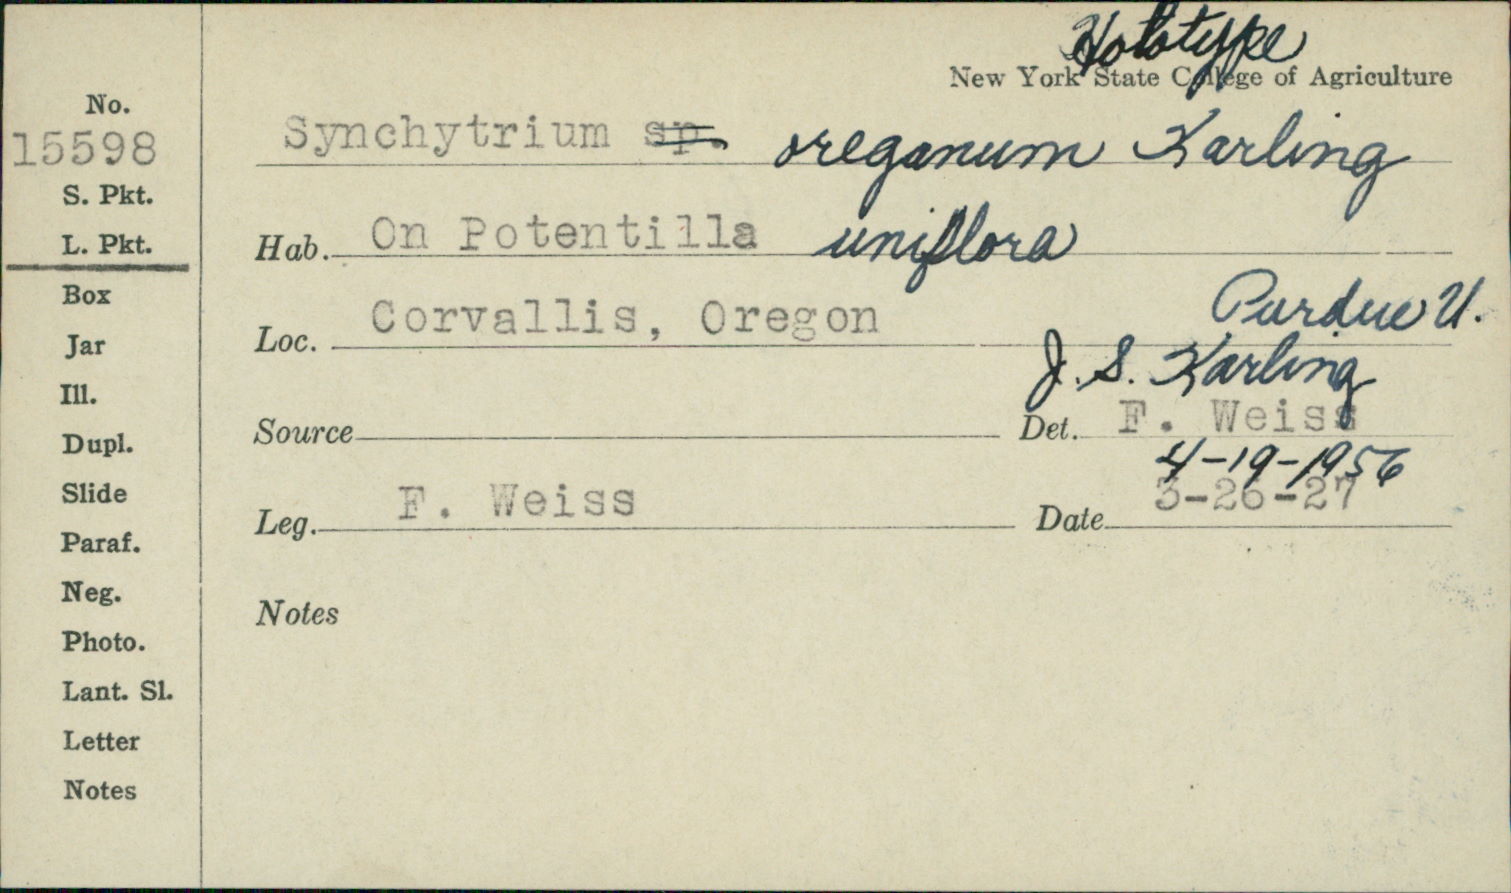 Holotype
New York State College of Agriculture
No.
15598
S. Pkt.
L. Pkt.
Box
Jar
Ill.
Dupl.
Slide
Paraf.
Neg.
Photo.
Lant. Sl.
Letter
Notes
Synchytrium sp. oreganum Karling
Hab. On Potentilla uniflora
Loc. Corvallis, Oregon
Purdue U.
J. S. Karling
Source
Det. F. Weiss
4-19-1956
Leg. F. Weiss
Date 3-26-27
Notes